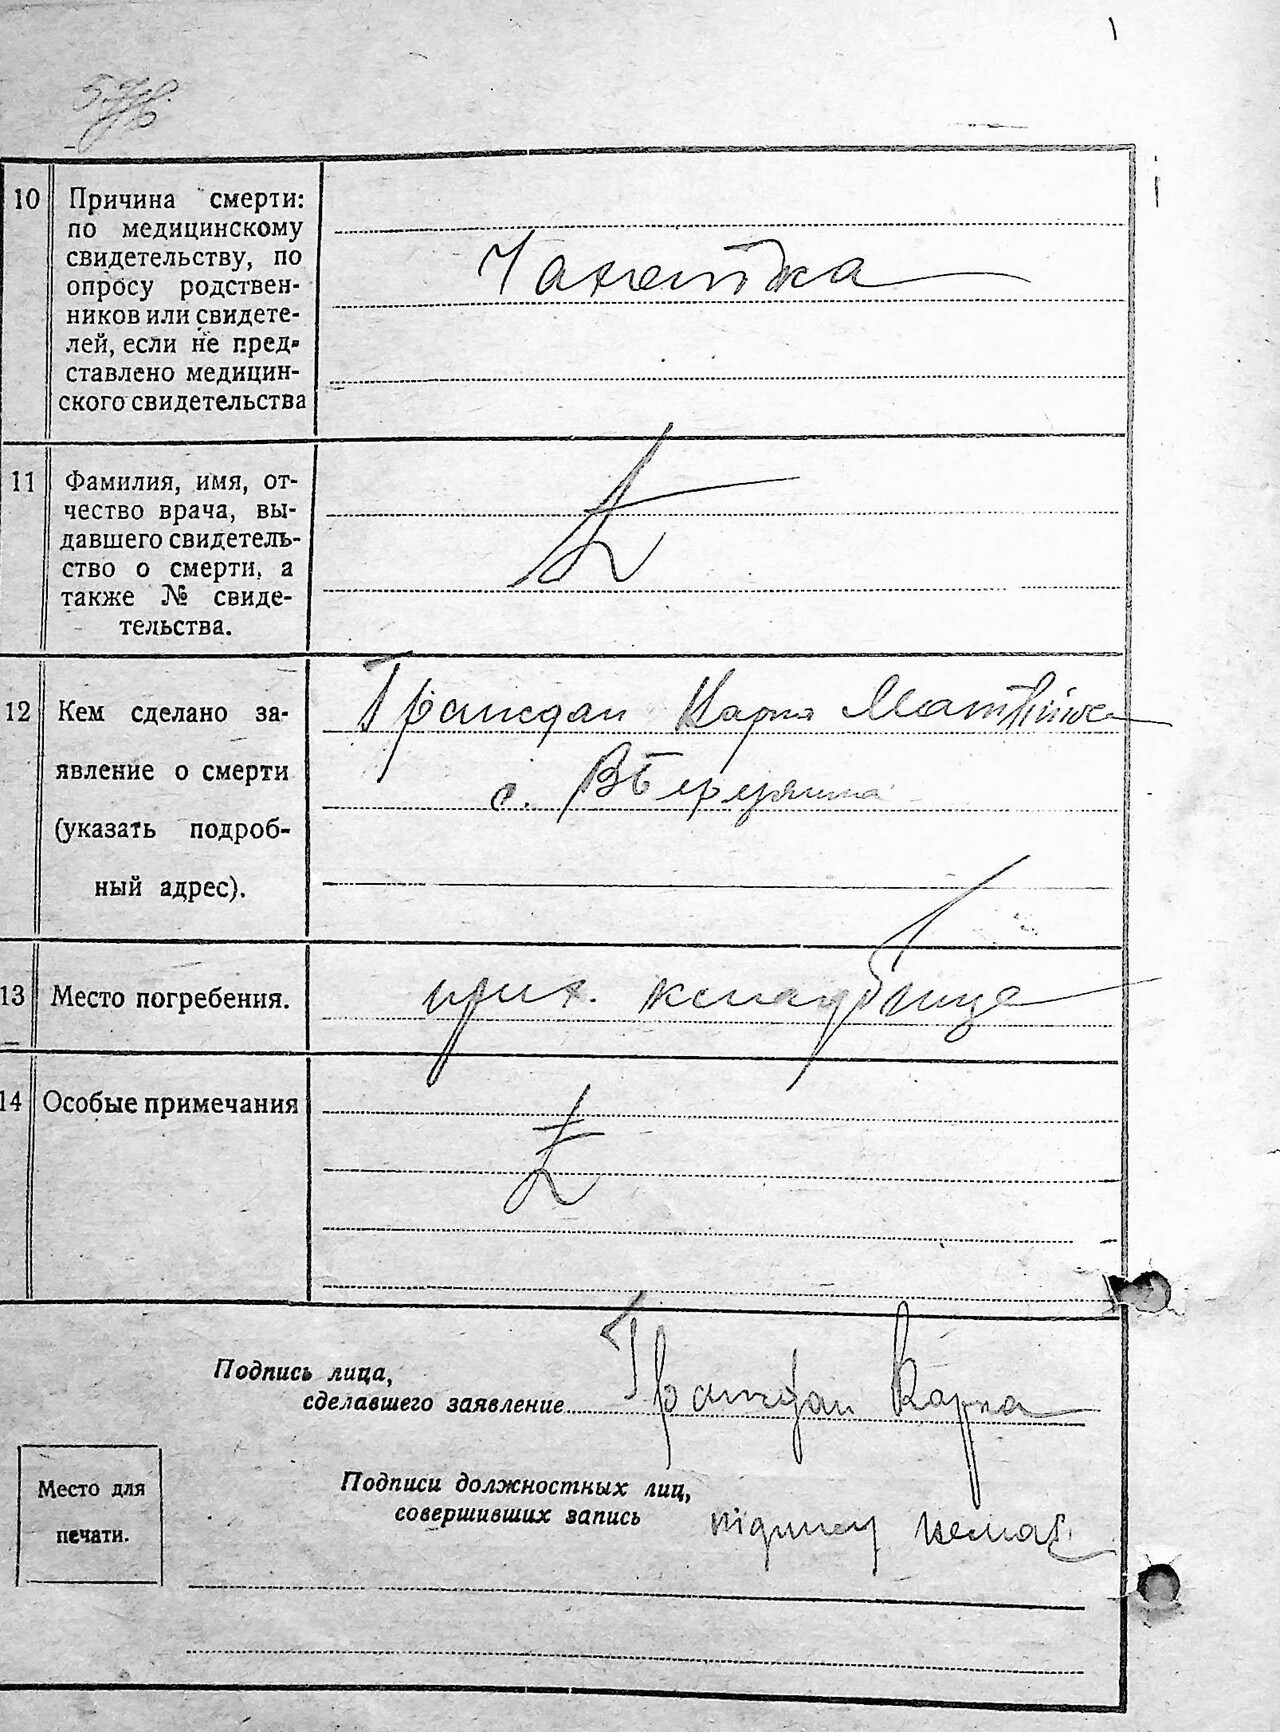 10 Причина смерти:
по медицинскому
свидетельству, по
опросу родствен-
ников или свидете-
лей, если не пред-
ставлено медицин-
ского свидетельства
Чахотка
11 Фамилия, имя, от-
чество врача, вы-
давшего свидетель-
ство о смерти, а
также № свиде-
тельства.
12 Кем сделано за-
явление о смерти
(указать подроб-
ный адрес).
Граждан Карпа
с.
13 Место погребения.
прих. кладбище
14 Особые примечания
Подпись лица,
сделавшего заявление Граждан Карпа
Место для
печати.
Подписи должностных лиц,
совершивших запись
підпису немає